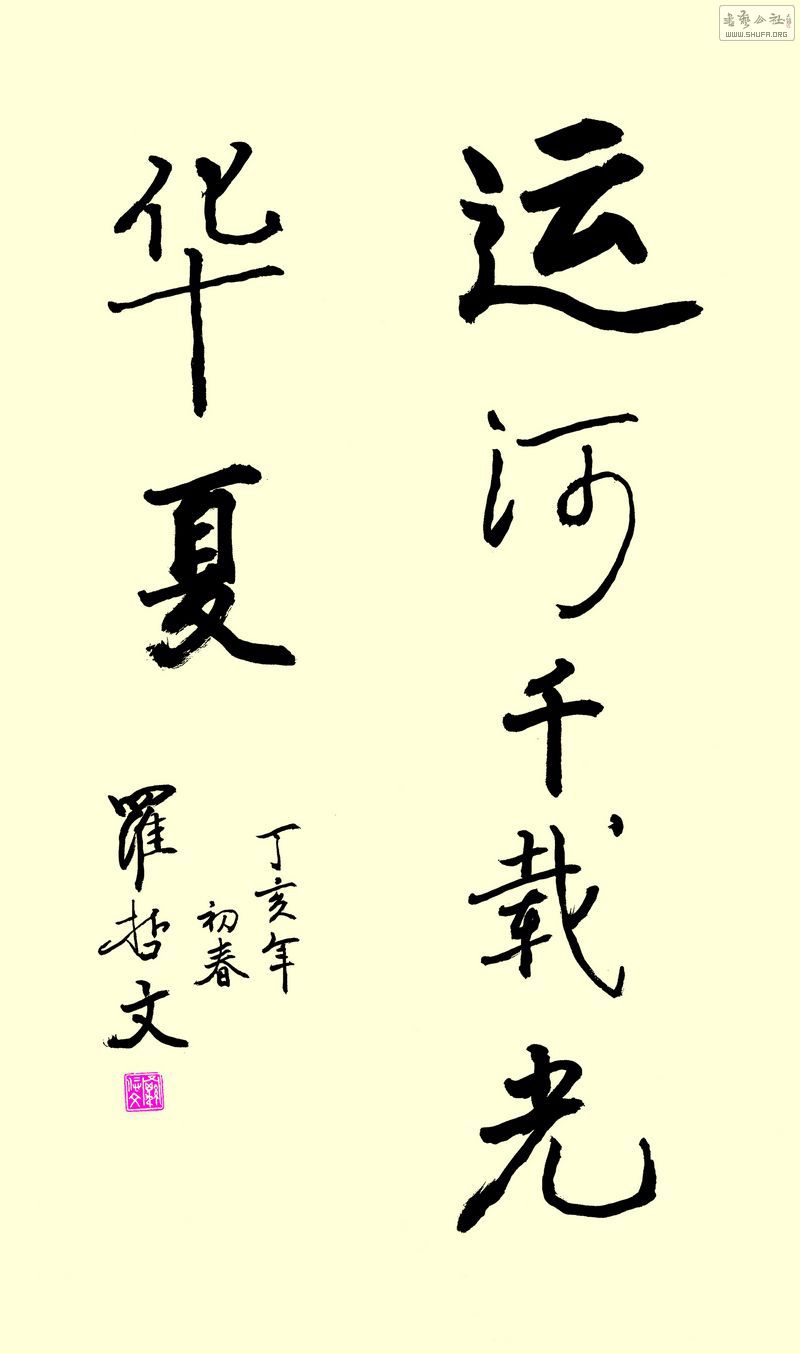 运河千载光
华夏
丁亥年
初春
羅哲文
書藝公社
WWW.SHUFA.ORG